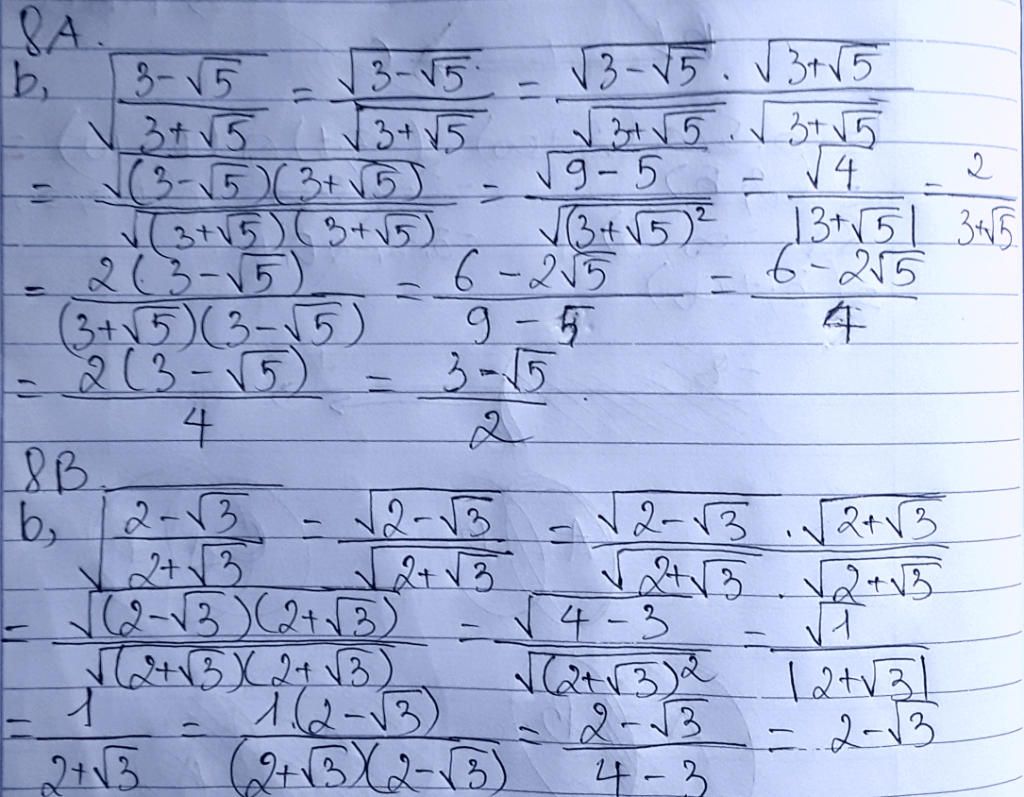 8A.
b, √((3-√5)/(3+√5)) = √(3-√5)/√(3+√5) = (√(3-√5) . √(3+√5))/(√(3+√5) . √(3+√5))
= √((3-√5)(3+√5))/√((3+√5)(3+√5)) = √(9-5)/√((3+√5)²) = √4/|3+√5| = 2/(3+√5)
= 2(3-√5)/((3+√5)(3-√5)) = (6-2√5)/(9-5) = (6-2√5)/4
= 2(3-√5)/4 = (3-√5)/2.
8B.
b, √((2-√3)/(2+√3)) = √(2-√3)/√(2+√3) = (√(2-√3) . √(2+√3))/(√(2+√3) . √(2+√3))
= √((2-√3)(2+√3))/√((2+√3)(2+√3)) = √(4-3)/√((2+√3)²) = √1/|2+√3|
= 1/(2+√3) = 1.(2-√3)/((2+√3)(2-√3)) = (2-√3)/(4-3) = 2-√3